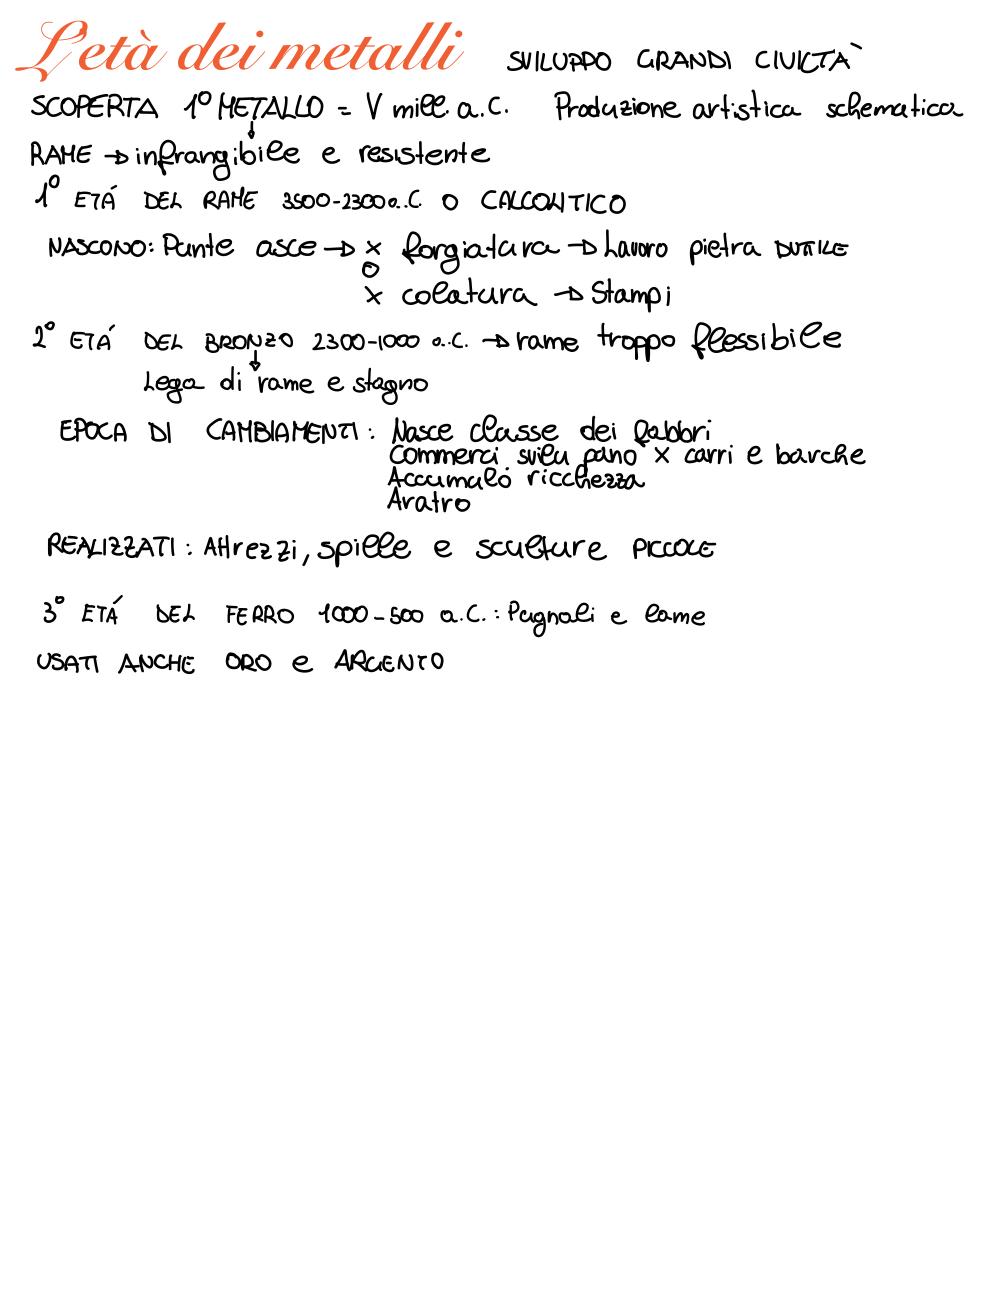 L'età dei metalli SVILUPPO GRANDI CIVILTÀ
SCOPERTA 1° METALLO = V mill. a.C. Produzione artistica schematica
↓
RAME → infrangibile e resistente
1° ETÁ DEL RAME 3500-2300 a.C O CALCOLITICO
NASCONO: Punte asce → x forgiatura → Lavoro pietra DUTTILE
o
x colatura → Stampi
2° ETÁ DEL BRONZO 2300-1000 a.C. → rame troppo flessibile
↓
Lega di rame e stagno
EPOCA DI CAMBIAMENTI: Nasce classe dei fabbri
Commerci svilu pano x carri e barche
Accumulo ricchezza
Aratro
REALIZZATI: Attrezzi, spille e sculture PICCOLE
3° ETÁ DEL FERRO 1000-500 a.C.: Pugnali e lame
USATI ANCHE ORO e ARGENTO